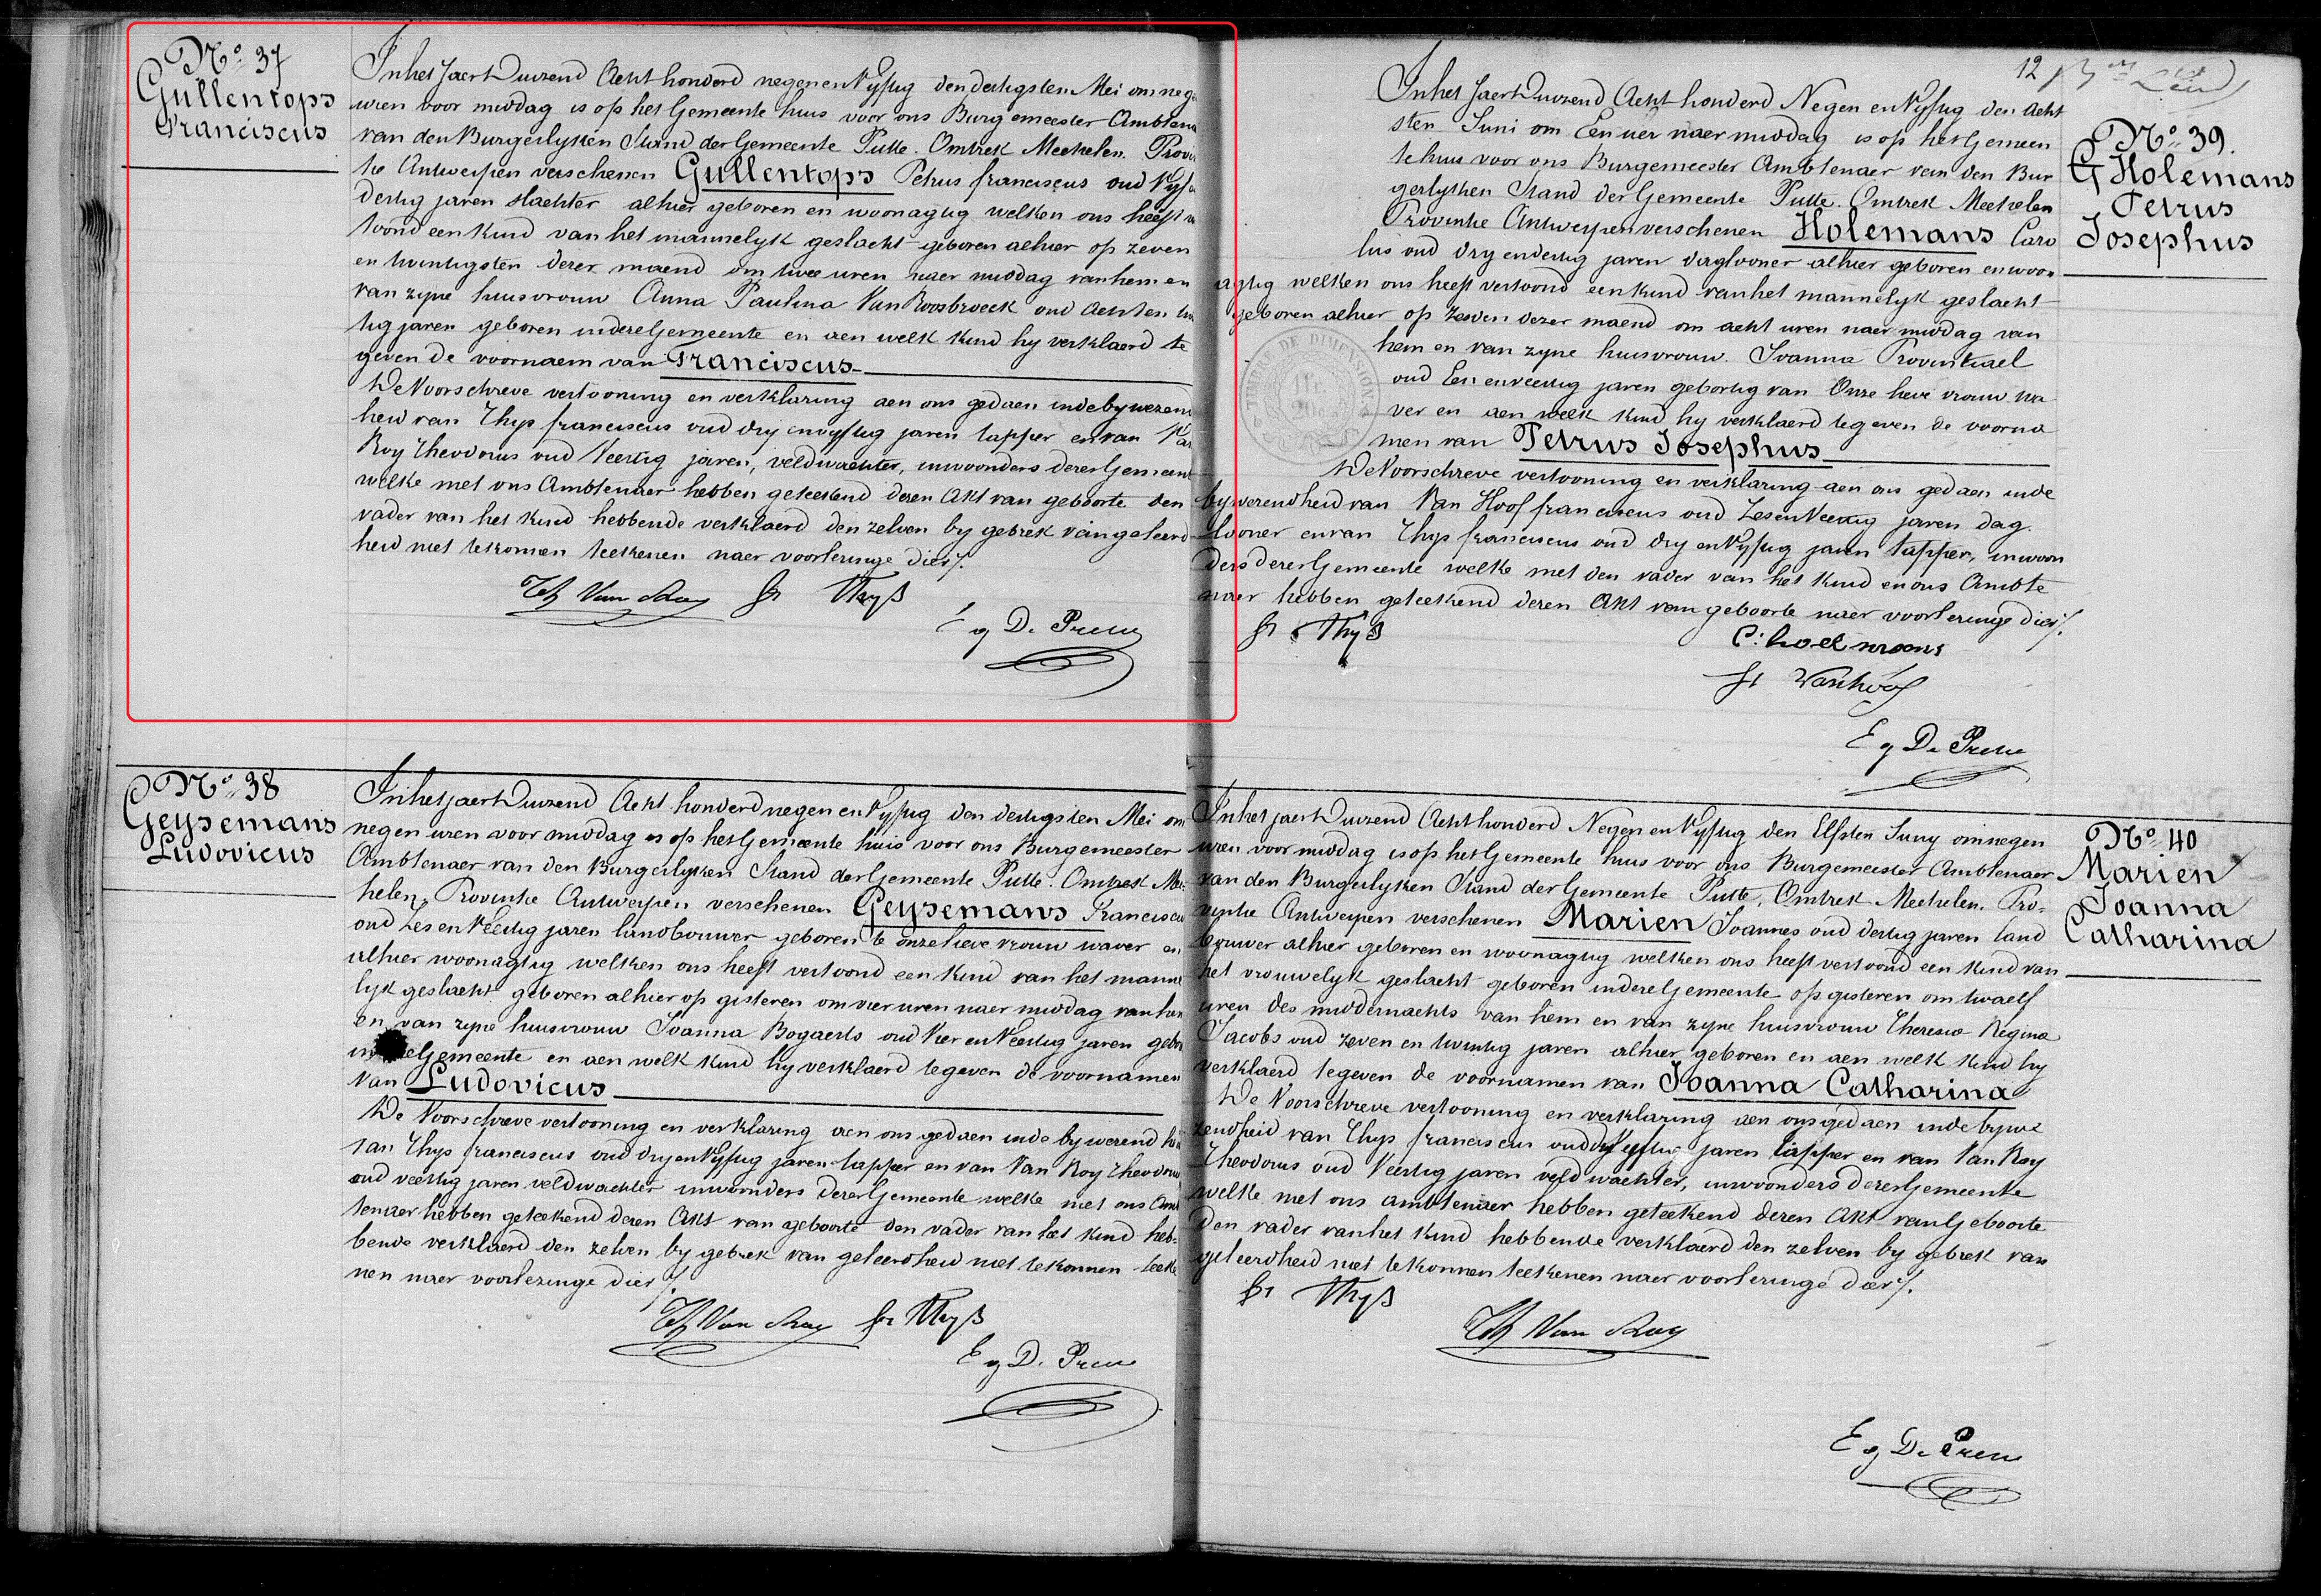 No 37
Gullentops
Franciscus
In het Jaer Duizend Acht honderd negen en Vyftig den dertigsten Mei om nege
uren voor middag is op het Gemeente huis voor ons Burgemeester Ambtena
van den Burgerlyken Stand der Gemeente Putte. Omtrek Mechelen. Provin
tie Antwerpen verschenen Gullentops Petrus franciscus oud Vyf
dertig jaren slachter alhier geboren en woonagtig welken ons heeft ver
toond een kind van het mannelyk geslacht geboren alhier op zeven
en twintigsten dezer maend om twee uren naer middag van hem en
van zyne huisvrouw Anna Paulina Van Roosbroeck oud Acht en twin
tig jaren geboren in deze Gemeente en aen welk kind hy verklaerd te
geven de voornaem van Franciscus
De Voorschreve vertooning en verklaring aen ons gedaen in de bywezend
heid van Thys franciscus oud dry en vyftig jaren tapper en van Van
Roy Theodorus oud Veertig jaren, veldwachter, inwoonders dezer Gemeente
welke met ons Ambtenaer hebben geteekend dezen Akt van geboorte den
vader van het kind hebbende verklaerd den zelven by gebrek van geleerd
heid niet te konnen teekenen naer voorlezinge dier /.
Th Van Roy fr Thys
Eg De Preter
No 38
Geysemans
Ludovicus
In het jaer Duizend Acht honderd negen en Vyftig den dertigsten Mei om
negen uren voor middag is op het Gemeente huis voor ons Burgemeester
Ambtenaer van den Burgerlyken Stand der Gemeente Putte. Omtrek Me-
chelen, Provintie Antwerpen verschenen Geysemans Franciscus
oud Zes en Veertig jaren landbouwer geboren te onze lieve vrouw waver en
alhier woonagtig welken ons heeft vertoond een kind van het manne
lyk geslacht geboren alhier op gisteren om vier uren naer middag van hem
en van zyne huisvrouw Joanna Bogaerts oud Vier en Veertig jaren gebo
in deze Gemeente en aen welk kind hy verklaerd te geven de voornamen
van Ludovicus
De Voorschreve vertooning en verklaring aen ons gedaen in de bywezend hei
van Thys franciscus oud dry en Vyftig jaren tapper en van Van Roy Theodorus
oud veertig jaren veldwachter inwoonders dezer Gemeente welke met ons Amb
tenaer hebben geteekend dezen Akt van geboorte den vader van het kind heb-
bende verklaerd den zelven by gebrek van geleerdheid niet te konnen teeke
nen naer voorlezinge dier /.
Th Van Roy fr Thys
Eg De Preter
12
No 39.
G Holemans
Petrus
Josephus
In het Jaer Duizend Acht honderd Negen en Vyftig den Acht
sten Juni om Een uer naer middag is op het Gemeen
te huis voor ons Burgemeester Ambtenaer van den Bur
gerlyken Stand der Gemeente Putte. Omtrek Mechelen
Provintie Antwerpen verschenen Holemans Caro
lus oud dry en dertig jaren daglooner alhier geboren en woon
agtig welken ons heeft vertoond een kind van het mannelyk geslacht
geboren alhier op Zeven dezer maend om acht uren naer middag van
hem en van zyne huisvrouw Joanna Provintiael
oud Een en veertig jaren gebortig van Onze lieve vrouw wa
ver en aen welk kind hy verklaerd te geven de voorna
men van Petrus Josephus
TIMBRE DE DIMENSION
De Voorschreve vertooning en verklaring aen ons gedaen in de
bywezendheid van Van Hoof franciscus oud Zes en Veertig jaren dag-
looner en van Thys franciscus oud dry en Vyftig jaren tapper, inwoon
ders dezer Gemeente welke met den vader van het kind en ons Ambte
naer hebben geteekend dezen Akt van geboorte naer voorlezinge dier /.
fr Thys
C: hoelemans
fr Vanhoof
Eg De Preter
No 40
Marien
Joanna
Catharina
In het jaer Duizend Acht honderd Negen en Vyftig den Elfsten Juny om negen
uren voor middag is op het Gemeente huis voor ons Burgemeester Ambtenaer
van den Burgerlyken Stand der Gemeente Putte, Omtrek Mechelen. Pro-
vintie Antwerpen verschenen Marien Joannes oud dertig jaren land
bouwer alhier geboren en woonagtig welken ons heeft vertoond een kind van
het vrouwelyk geslacht geboren in deze Gemeente op gisteren om twaelf
uren des middernachts van hem en van zyne huisvrouw Theresia Regina
Jacobs oud zeven en twintig jaren alhier geboren en aen welk kind hy
verklaerd te geven de voornamen van Joanna Catharina
De Voorschreve vertooning en verklaring aen ons gedaen in de bywe
zendheid van Thys franciscus oud dry Vyftig jaren tapper en van Van Roy
Theodorus oud Veertig jaren veldwachter, inwoonders dezer Gemeente
welke met ons ambtenaer hebben geteekend dezen Akt van Geboorte
den vader van het kind hebbende verklaerd den zelven by gebrek van
geleerdheid niet te konnen teekenen naer voorlezinge dier /.
fr Thys
Th Van Roy
Eg De Preter